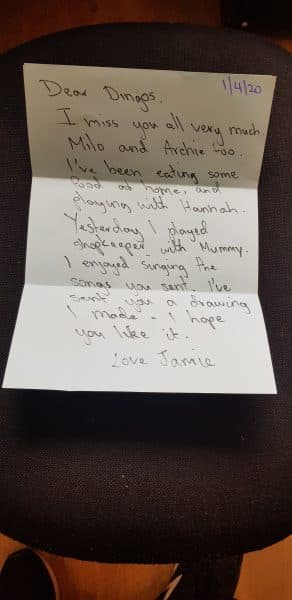 1/4/20
Dear Dingos,
I miss you all very much.
Milo and Archie too.
I've been eating some
food at home, and
playing with Hannah.
Yesterday I played
shopkeeper with Mummy.
I enjoyed singing the
songs you sent. I've
sent you a drawing
I made - I hope
you like it.
Love Jamie